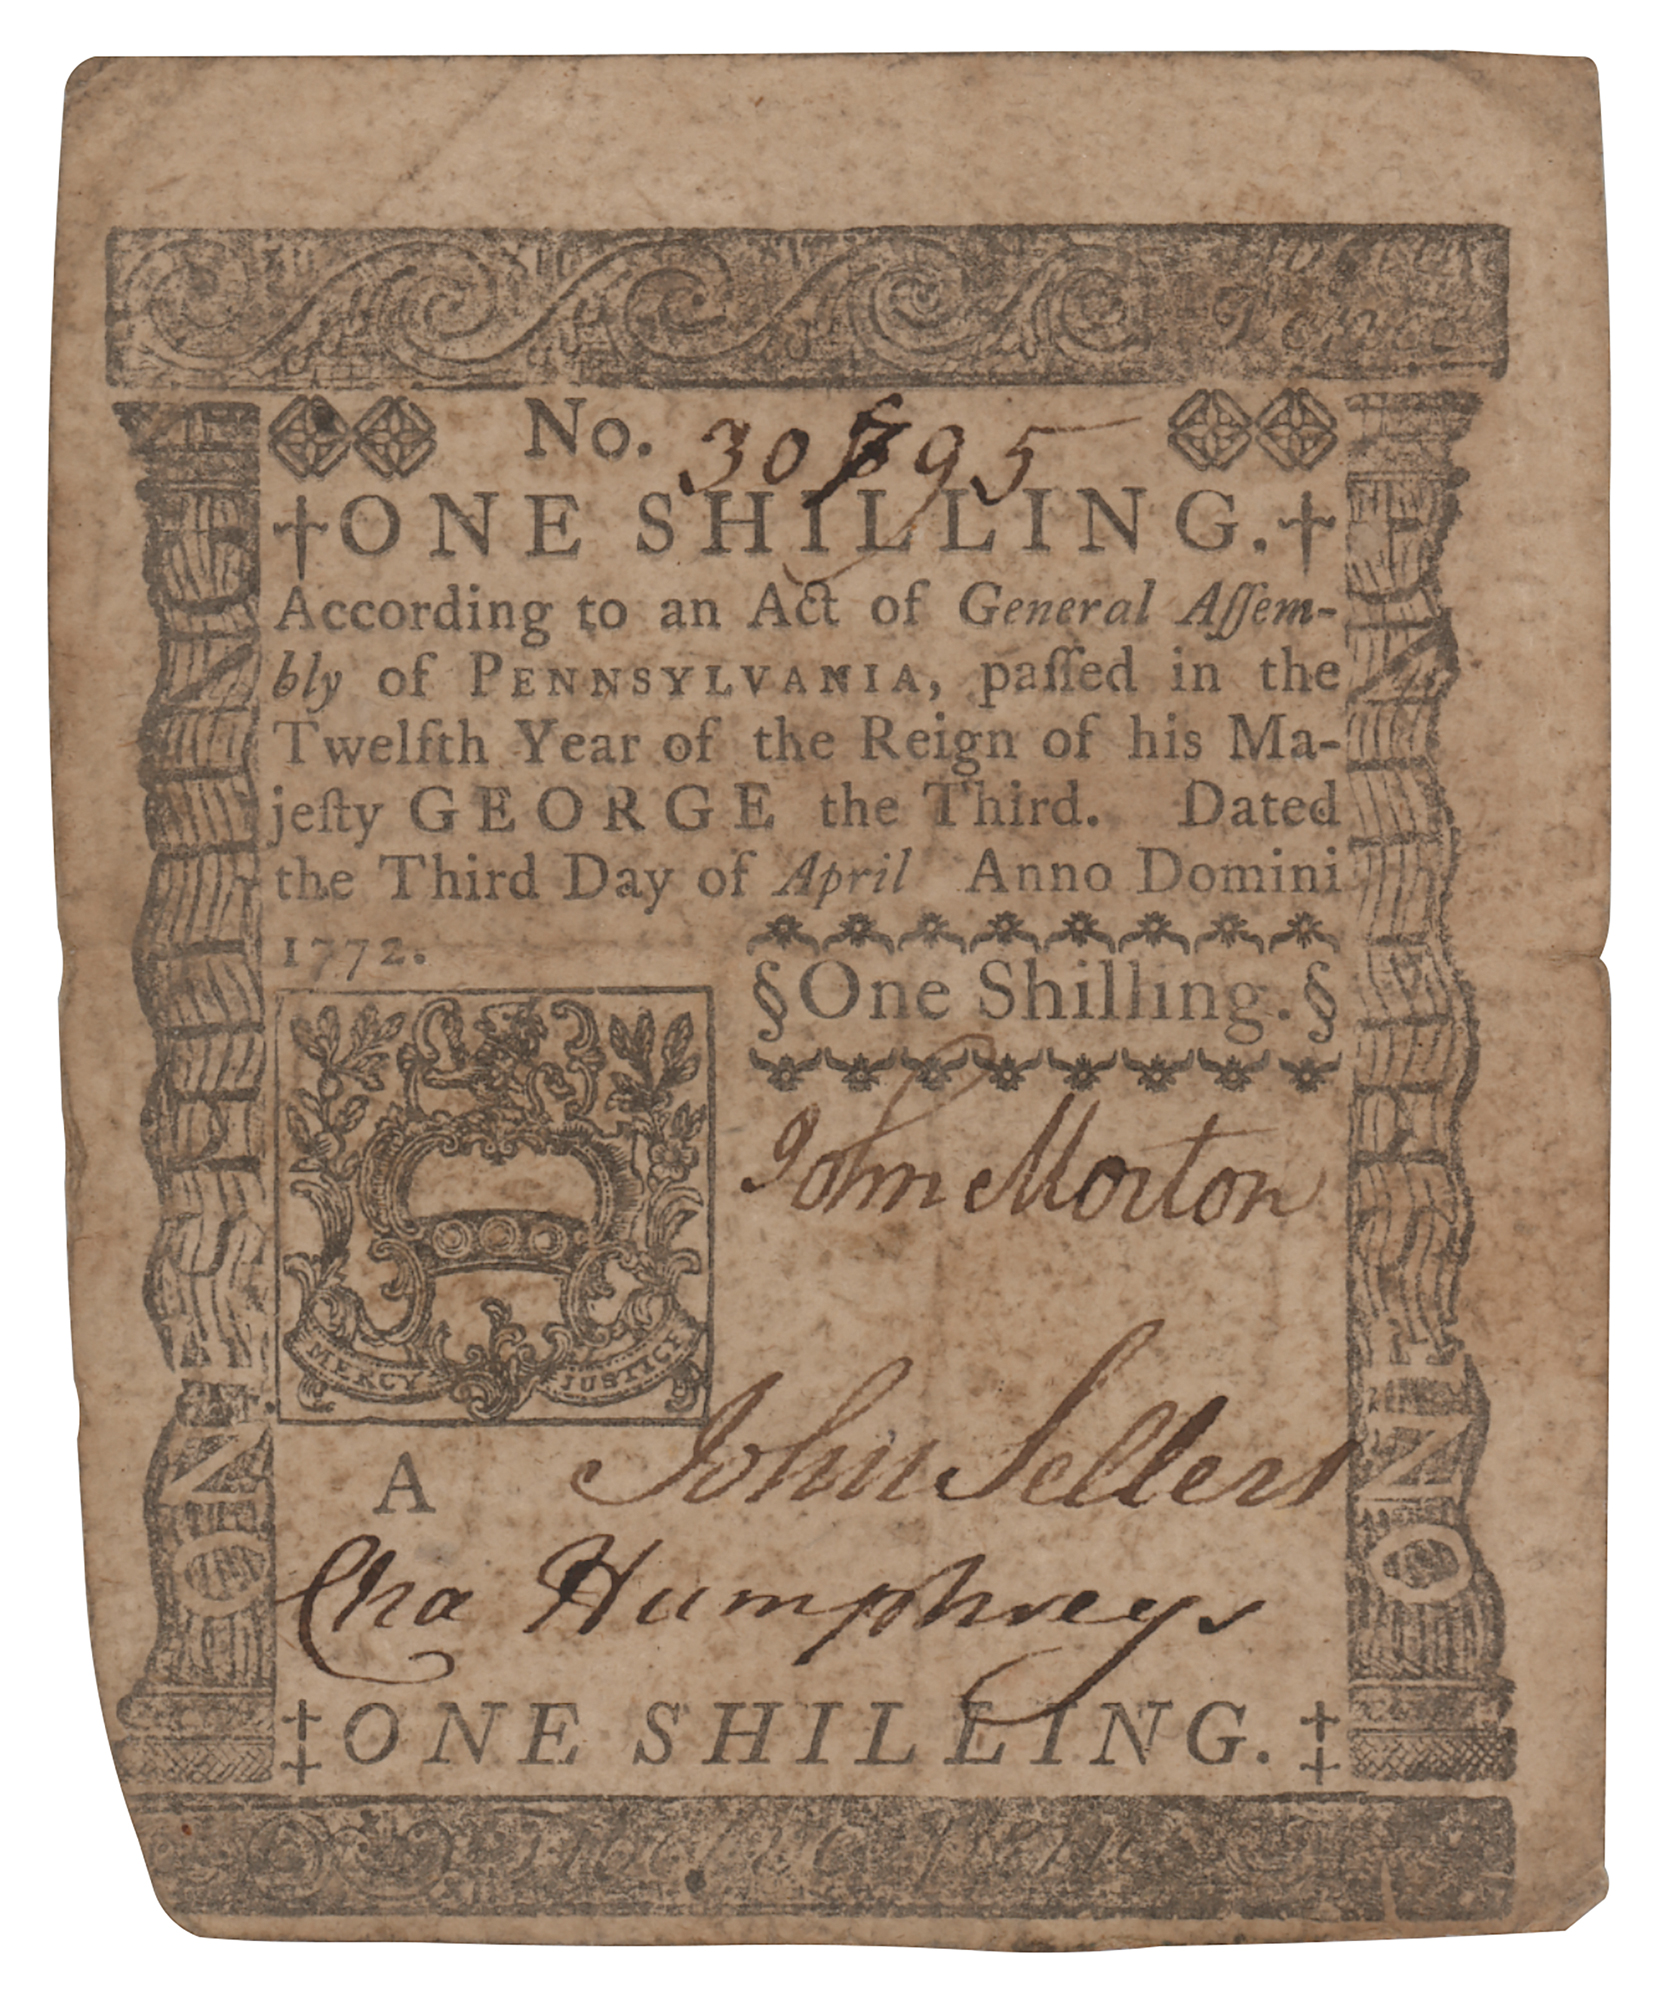 No. 30795
‡ONE SHILLING.‡
According to an Act of General Aſſem-
bly of PENNSYLVANIA, paſſed in the
Twelfth Year of the Reign of his Ma-
jeſty GEORGE the Third. Dated
the Third Day of April Anno Domini
1772.
§One Shilling.§
John Morton
MERCY JUSTICE
A John Sellers
Cha Humphreys
‡ONE SHILLING.‡
ONE SHILLING
ONE SHILLING